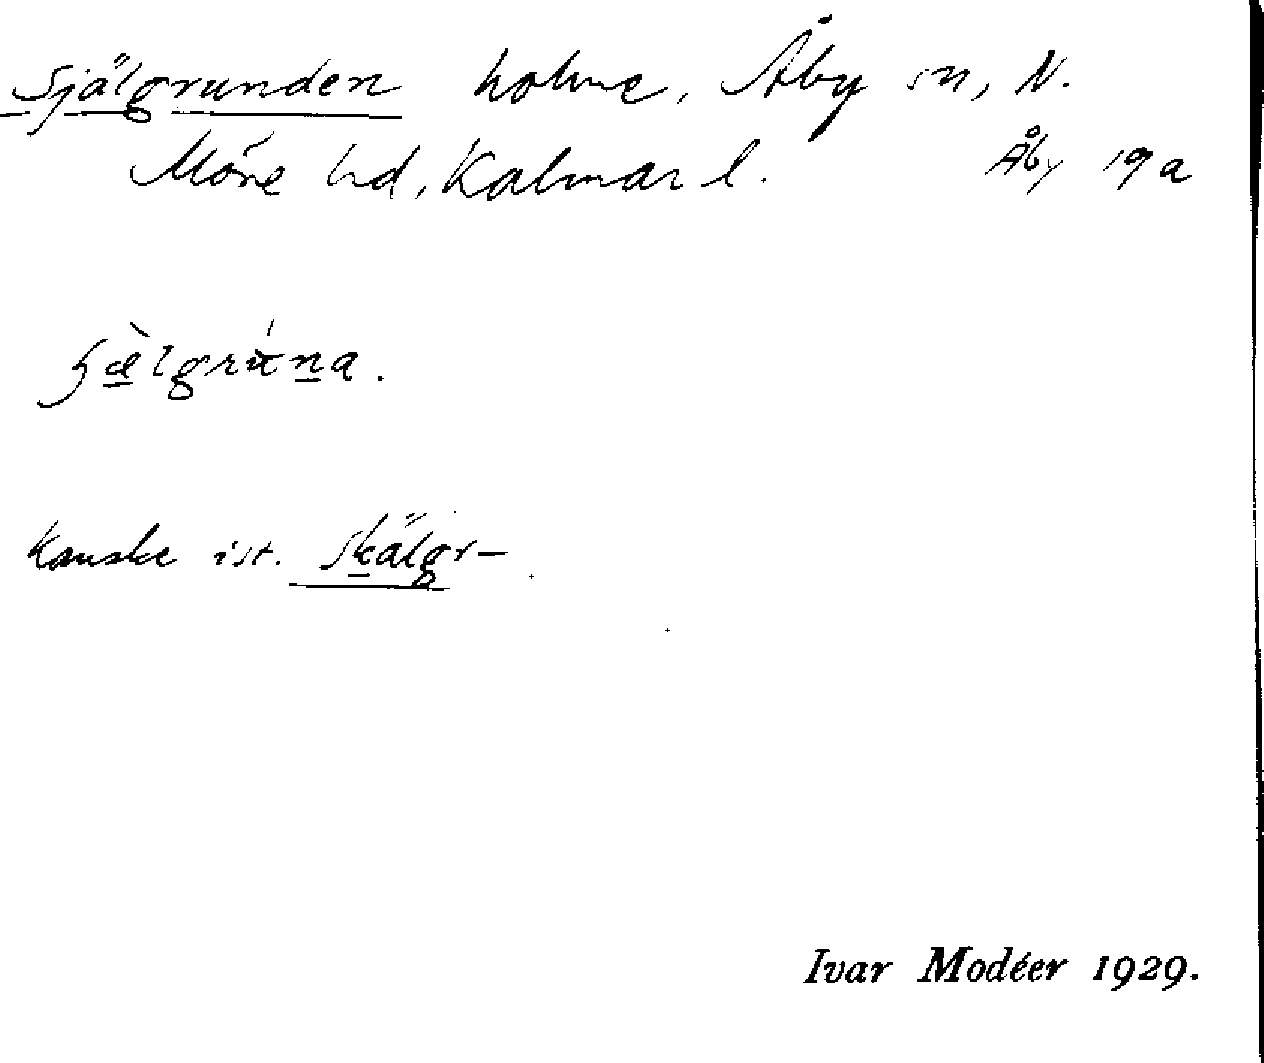 Själgrunden holme, Åby sn, N.
Möre hd, Kalmar l. Åby 19 a
Kanske ist. Skälgr-
Ivar Modéer 1929.